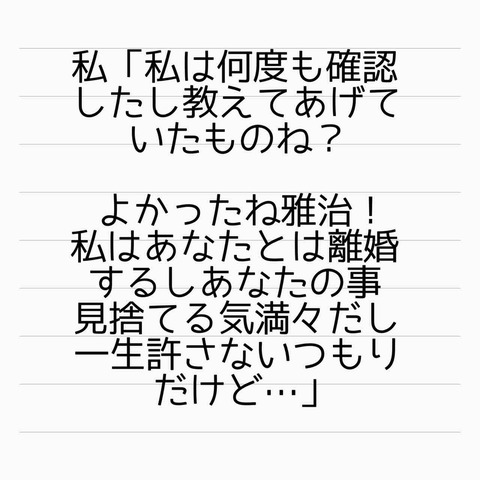 私「私は何度も確認
したし教えてあげて
いたものね？
よかったね雅治！
私はあなたとは離婚
するしあなたの事
見捨てる気満々だし
一生許さないつもり
だけど…」